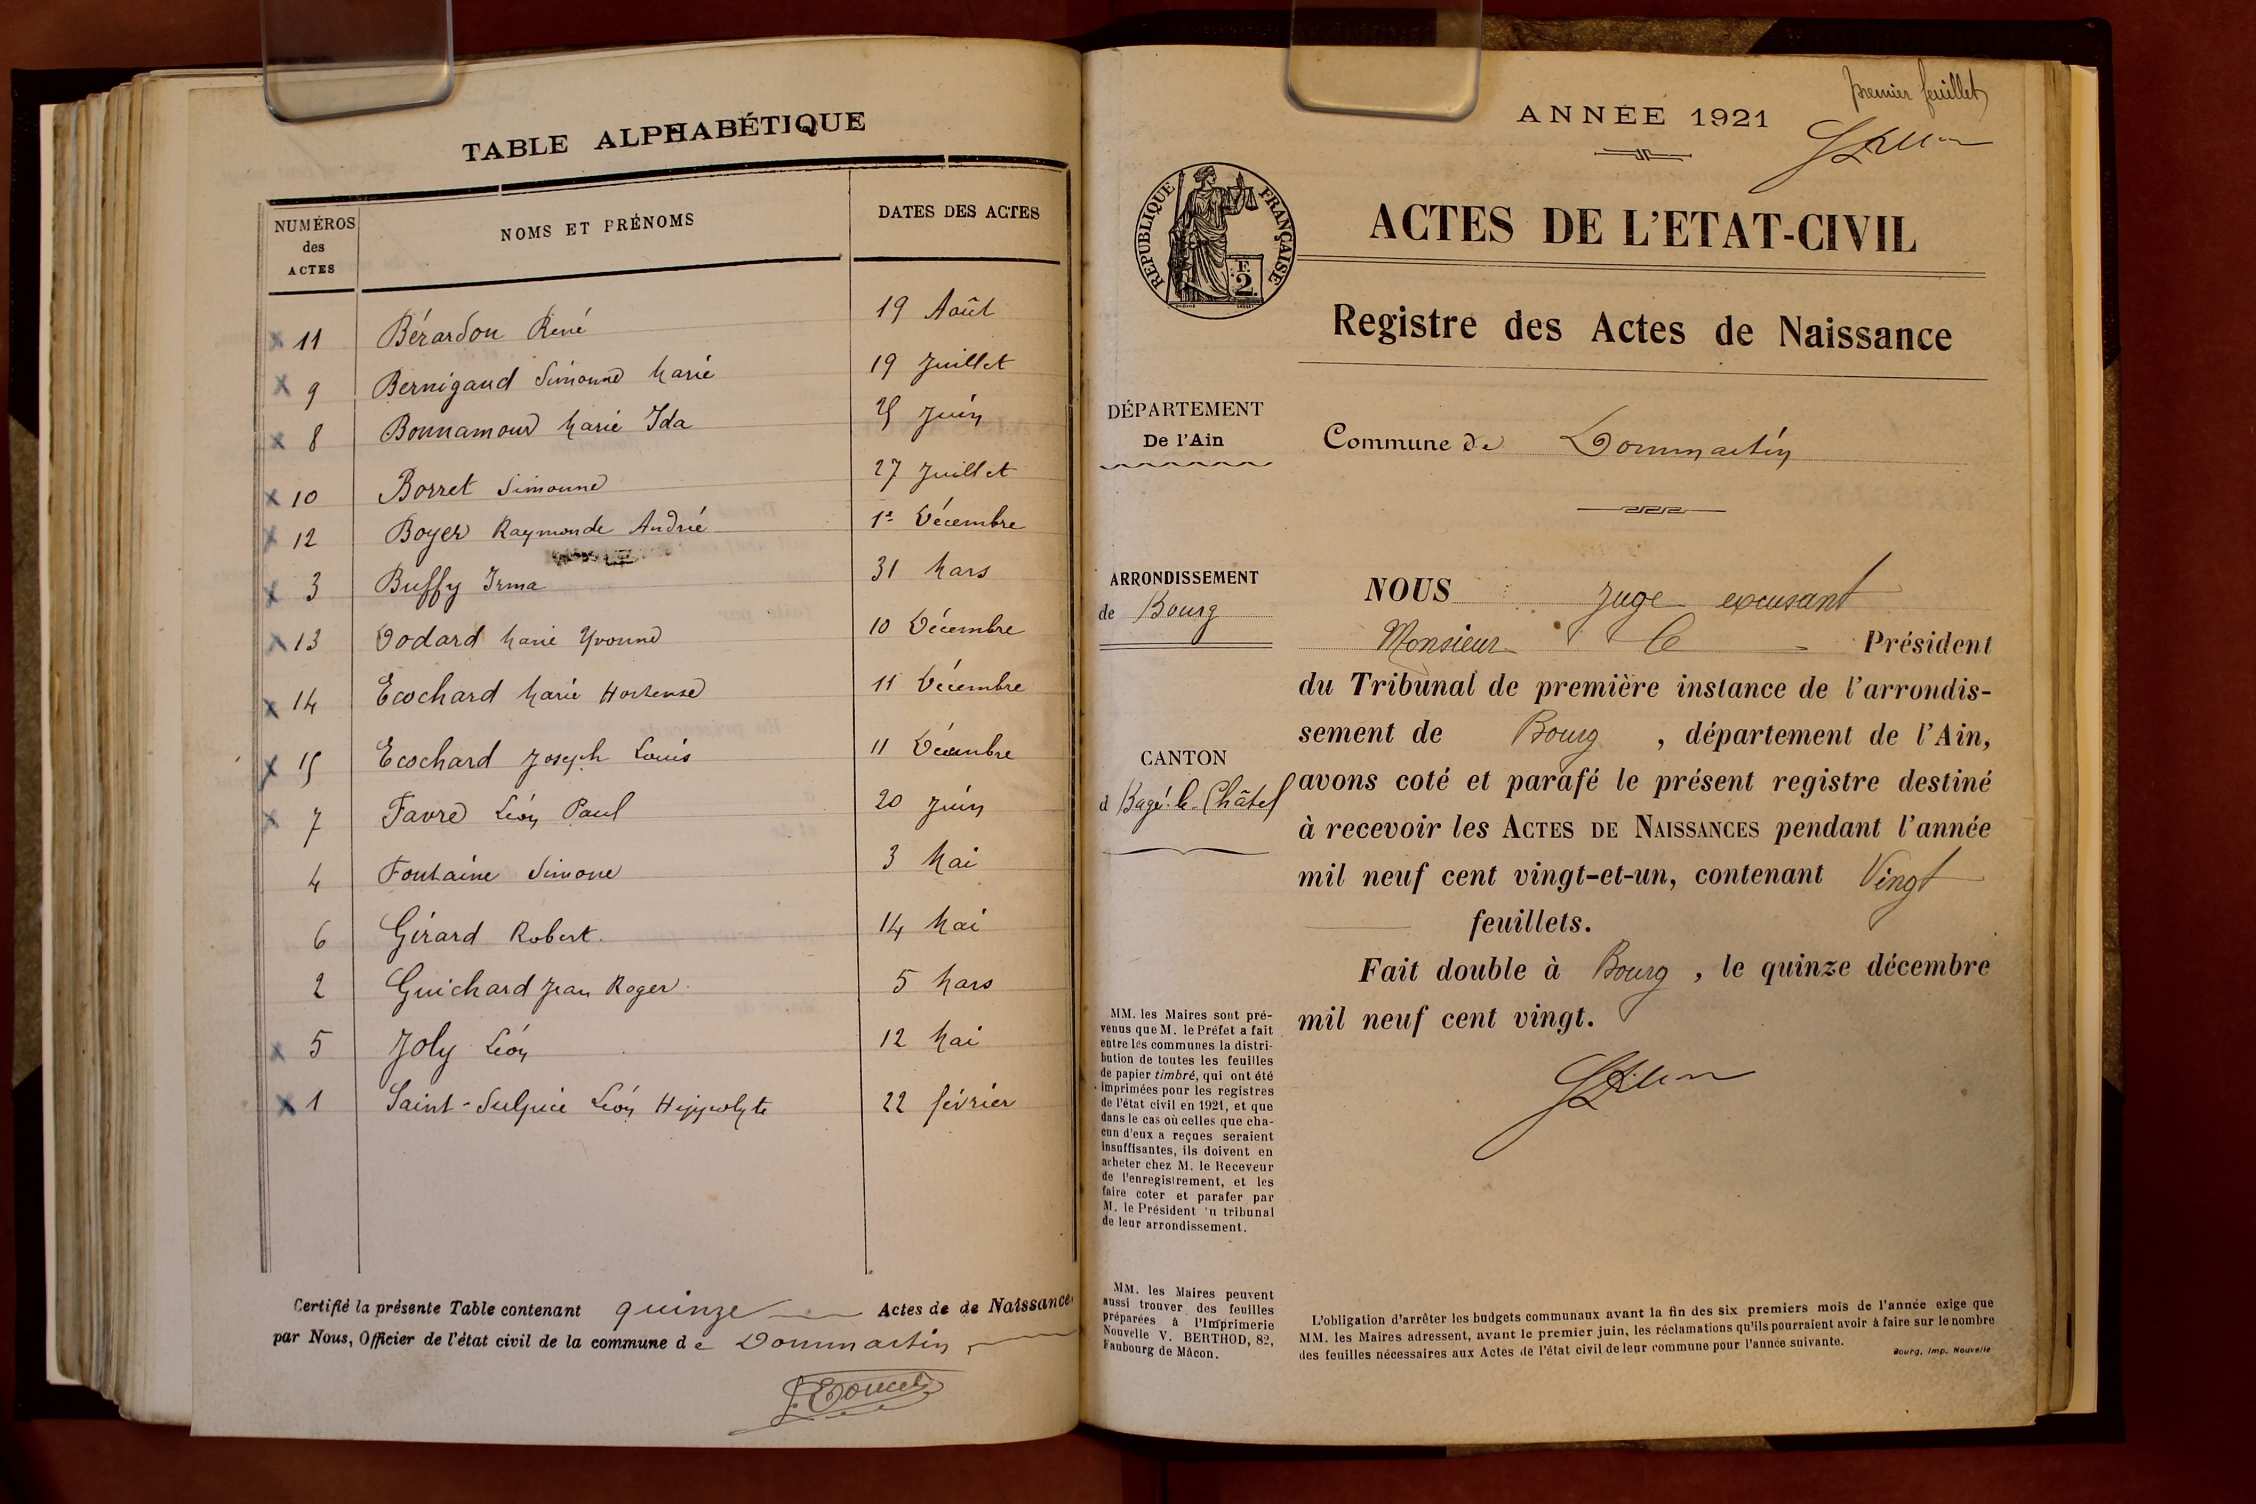 TABLE ALPHABÉTIQUE
NUMÉROS des ACTES NOMS ET PRÉNOMS DATES DES ACTES
11 Bérardon René 19 Août
9 Bernigaud Simonne Marie 19 Juillet
8 Bonnamour Marie Ida 25 Juin
10 Borret Simonne 27 Juillet
12 Boyer Raymonde Andrée 1er Décembre
3 Buffy Irma 31 Mars
13 Dodard Marie Yvonne 10 Décembre
14 Ecochard Marie Hortense 11 Décembre
15 Ecochard Joseph Louis 11 Décembre
7 Favre Léon Paul 20 Juin
4 Fontaine Simone 3 Mai
6 Girard Robert. 14 Mai
2 Guichard Jean Roger. 5 Mars
5 Joly Léon 12 Mai
1 Saint-Sulpice Léon Hippolyte 22 février
Certifié la présente Table contenant quinze Actes de de Naissance
par Nous, Officier de l'état civil de la commune de Dommartin
premier feuillet
ANNÉE 1921
RÉPUBLIQUE FRANÇAISE
F. 2
ACTES DE L'ETAT-CIVIL
Registre des Actes de Naissance
DÉPARTEMENT
De l'Ain
Commune de Dommartin
ARRONDISSEMENT
de Bourg
CANTON
d Bagé-le-Châtel
MM. les Maires sont pré-
venus que M. le Préfet a fait
entre les communes la distri-
bution de toutes les feuilles
de papier timbré, qui ont été
imprimées pour les registres
de l'état civil en 1921, et que
dans le cas où celles que cha-
cun d'eux a reçues seraient
insuffisantes, ils doivent en
acheter chez M. le Receveur
de l'enregistrement, et les
faire coter et parafer par
M. le Président 'u tribunal
de leur arrondissement.
MM. les Maires peuvent
aussi trouver des feuilles
préparées à l'Imprimerie
Nouvelle V. BERTHOD, 82,
Faubourg de Mâcon.
NOUS Juge excusant
Monsieur le Président
du Tribunal de première instance de l'arrondis-
sement de Bourg, département de l'Ain,
avons coté et parafé le présent registre destiné
à recevoir les ACTES DE NAISSANCES pendant l'année
mil neuf cent vingt-et-un, contenant Vingt
feuillets.
Fait double à Bourg, le quinze décembre
mil neuf cent vingt.
L'obligation d'arrêter les budgets communaux avant la fin des six premiers mois de l'année exige que
MM. les Maires adressent, avant le premier juin, les réclamations qu'ils pourraient avoir à faire sur le nombre
des feuilles nécessaires aux Actes de l'état civil de leur commune pour l'année suivante.
Bourg, Imp. Nouvelle